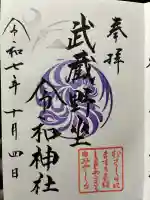 奉拝
武蔵野坐
令和神社
令和七年十月四日